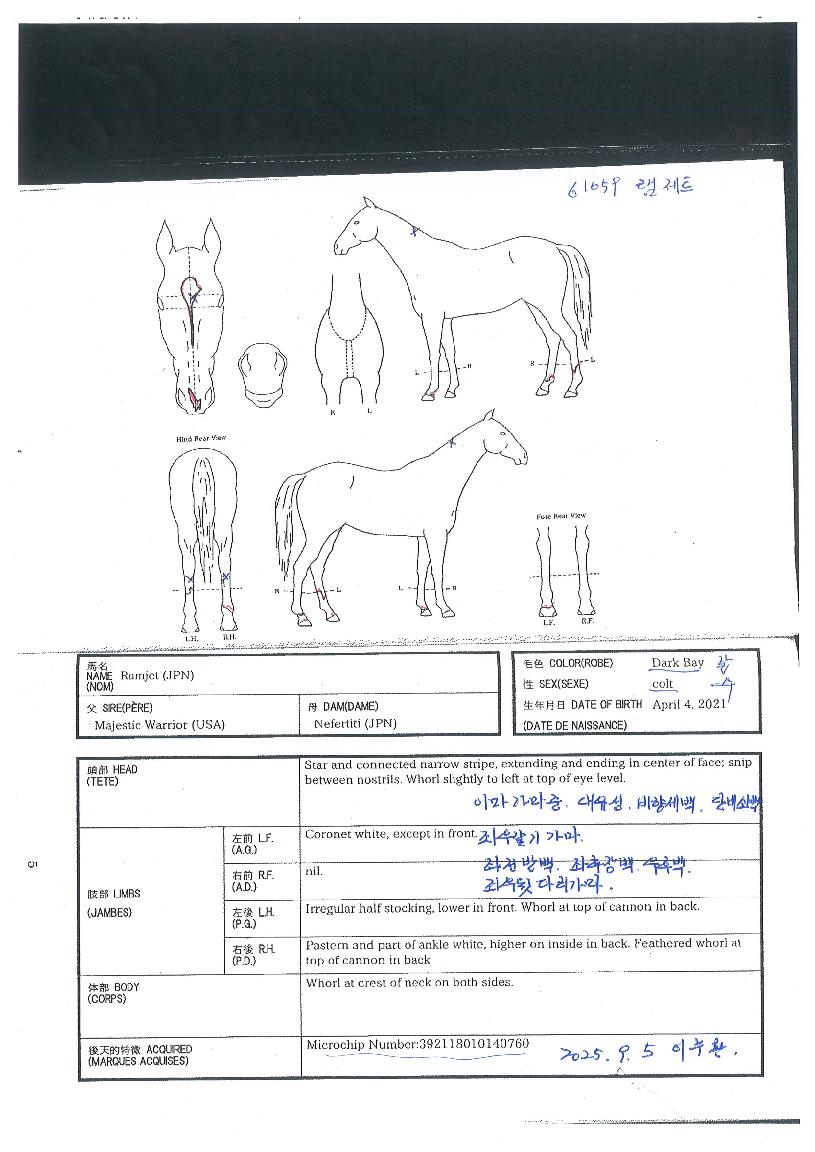 61659 램제트
L R R L
R L
Hind Rear View
Fore Rear View
R L L R
L.H. R.H.
L.F. R.F.
馬名
NAME Ramjet (JPN)
(NOM)
父 SIRE(PÈRE)
Majestic Warrior (USA)
母 DAM(DAME)
Nefertiti (JPN)
毛色 COLOR(ROBE) Dark Bay 갈
性 SEX(SEXE) colt 수
生年月日 DATE OF BIRTH April 4, 2021
(DATE DE NAISSANCE)
頭部 HEAD
(TETE)
Star and connected narrow stripe, extending and ending in center of face; snip
between nostrils. Whorl slightly to left at top of eye level.
이마가마중. 대유성. 비량세백. 단비소백
肢部 LIMBS
(JAMBES)
左前 L.F.
(A.G.)
Coronet white, except in front. 좌우갈기가마.
右前 R.F.
(A.D.)
nil.
좌전반백. 좌후장백. 우후백.
좌우뒷다리가마.
左後 L.H.
(P.G.)
Irregular half stocking, lower in front. Whorl at top of cannon in back.
右後 R.H.
(P.D.)
Pastern and part of ankle white, higher on inside in back. Feathered whorl at
top of cannon in back
体部 BODY
(CORPS)
Whorl at crest of neck on both sides.
後天的特徴 ACQUIRED
(MARQUES ACQUISES)
Microchip Number:392118010140760
2025. 9. 5 이
5